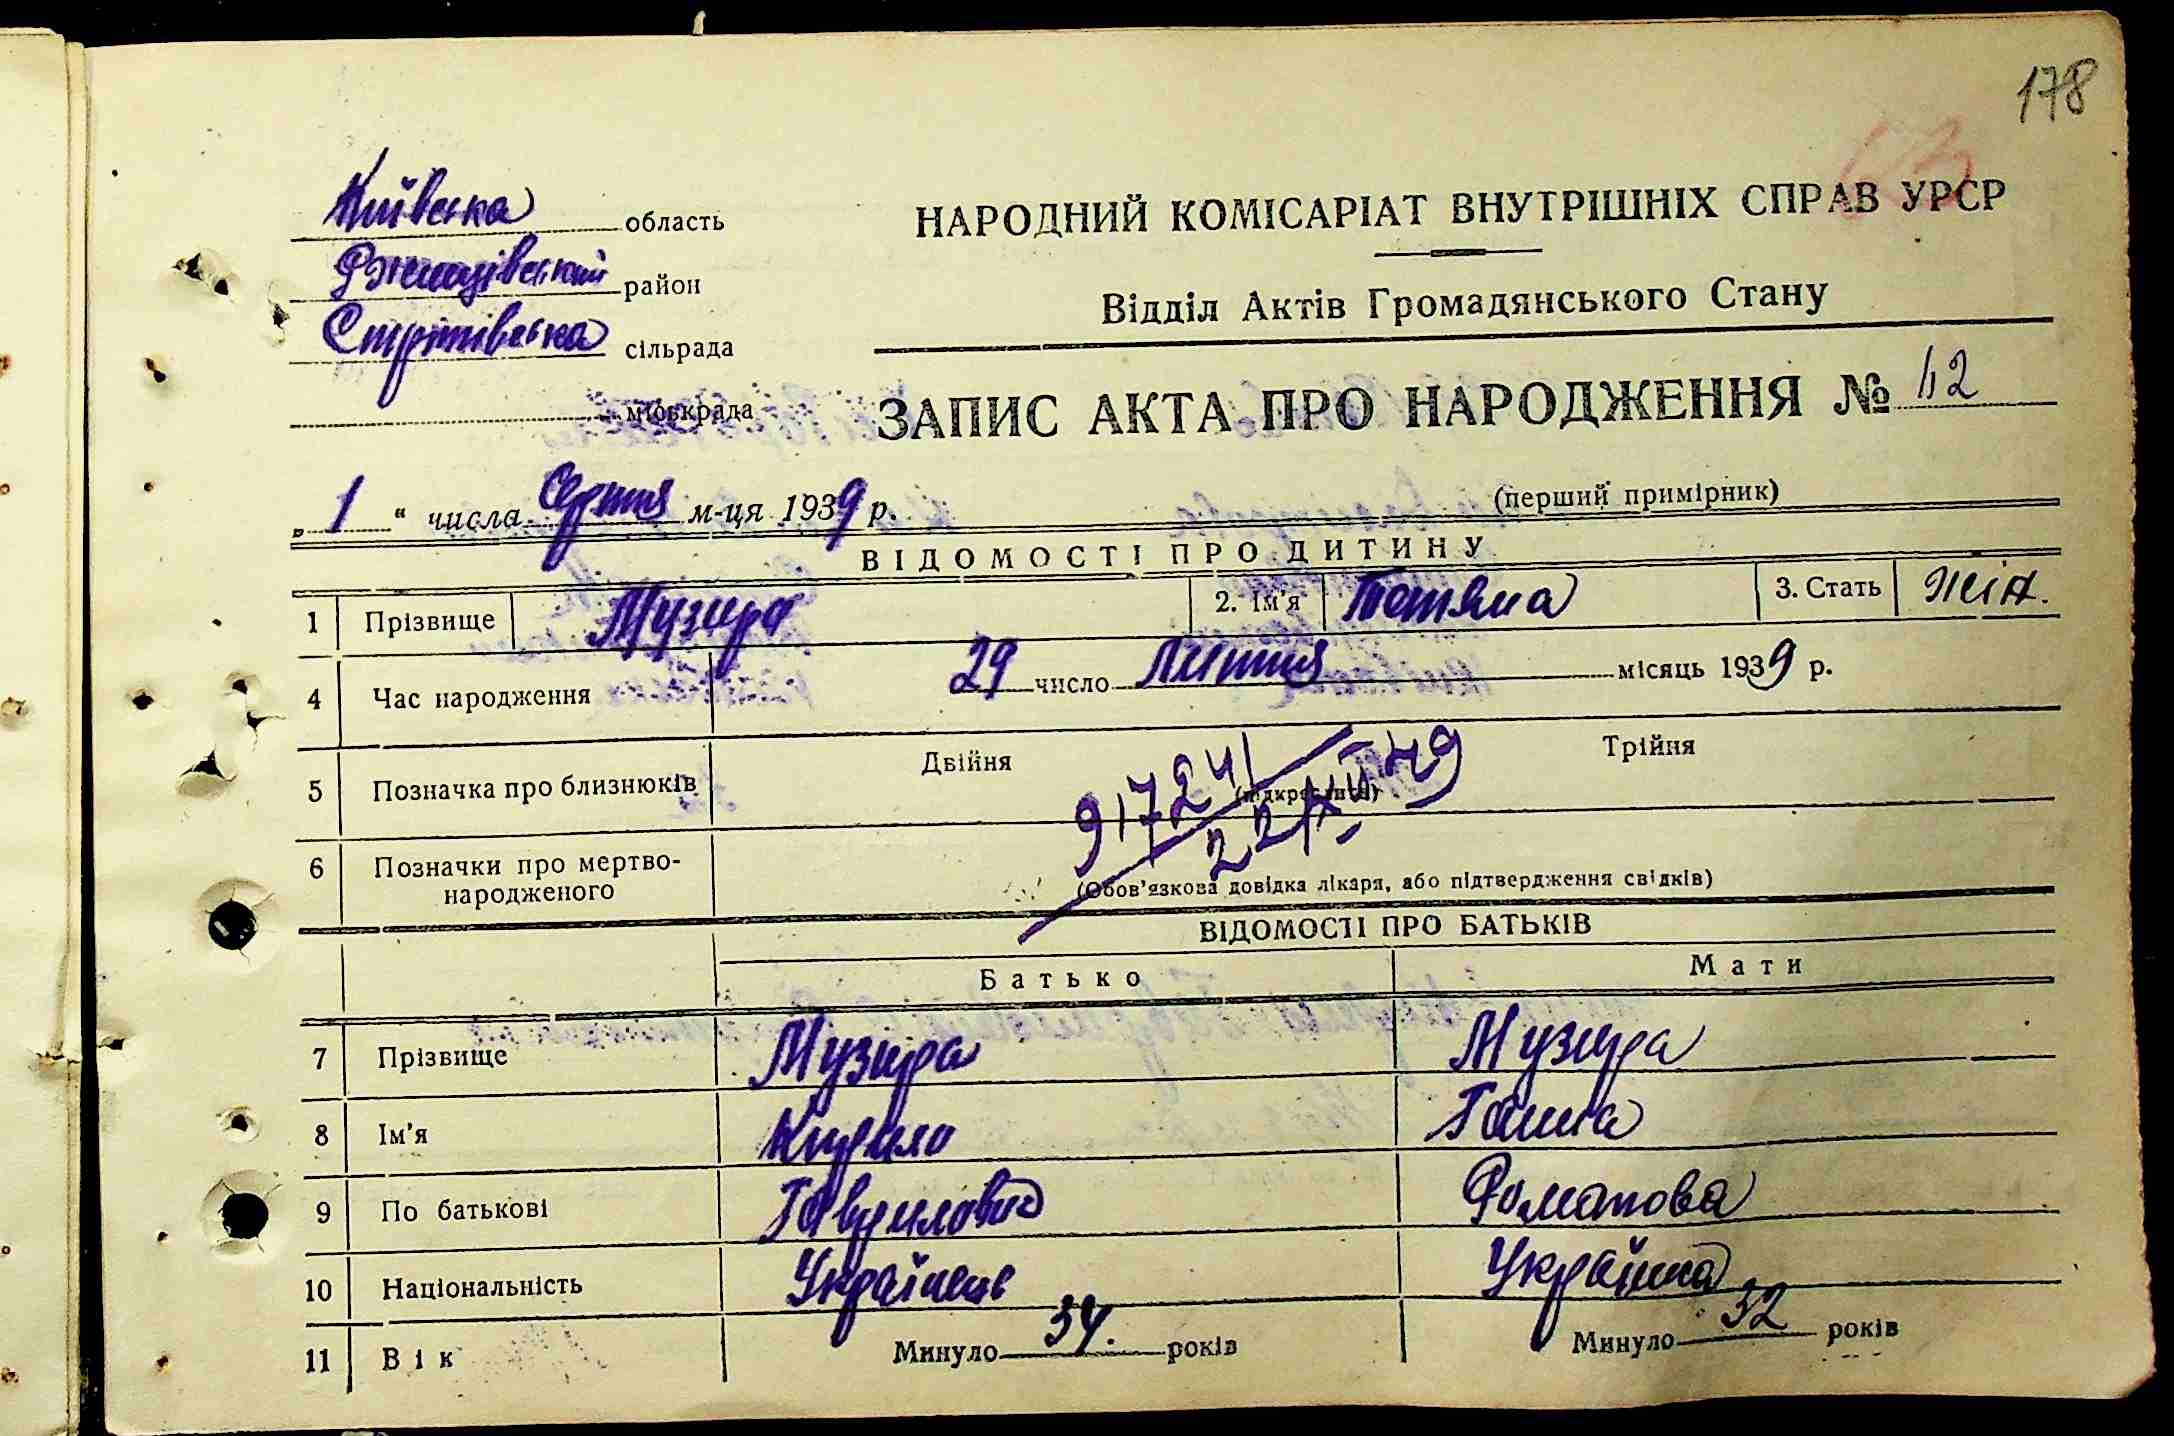 178
63
Київська область
Ржищівський район
Стритівська сільрада
міськрада
НАРОДНИЙ КОМІСАРІАТ ВНУТРІШНІХ СПРАВ УРСР
Відділ Актів Громадянського Стану
ЗАПИС АКТА ПРО НАРОДЖЕННЯ № 42
„1“ числа Серпня м-ця 1939 р. (перший примірник)
ВІДОМОСТІ ПРО ДИТИНУ
1 Прізвище Музира 2. Ім'я Татяна 3. Стать жін.
4 Час народження 29 число Липня місяць 1939 р.
5 Позначка про близнюків Двійня Трійня
(підкреслити)
917241
22/XII-49
6 Позначки про мертво-
народженого
(Обов'язкова довідка лікаря, або підтвердження свідків)
ВІДОМОСТІ ПРО БАТЬКІВ
Батько Мати
7 Прізвище Музира Музира
8 Ім'я Кирило Ганна
9 По батькові Гаврилович Романова
10 Національність Українець Українка
11 Вік Минуло 34. років Минуло 32 років